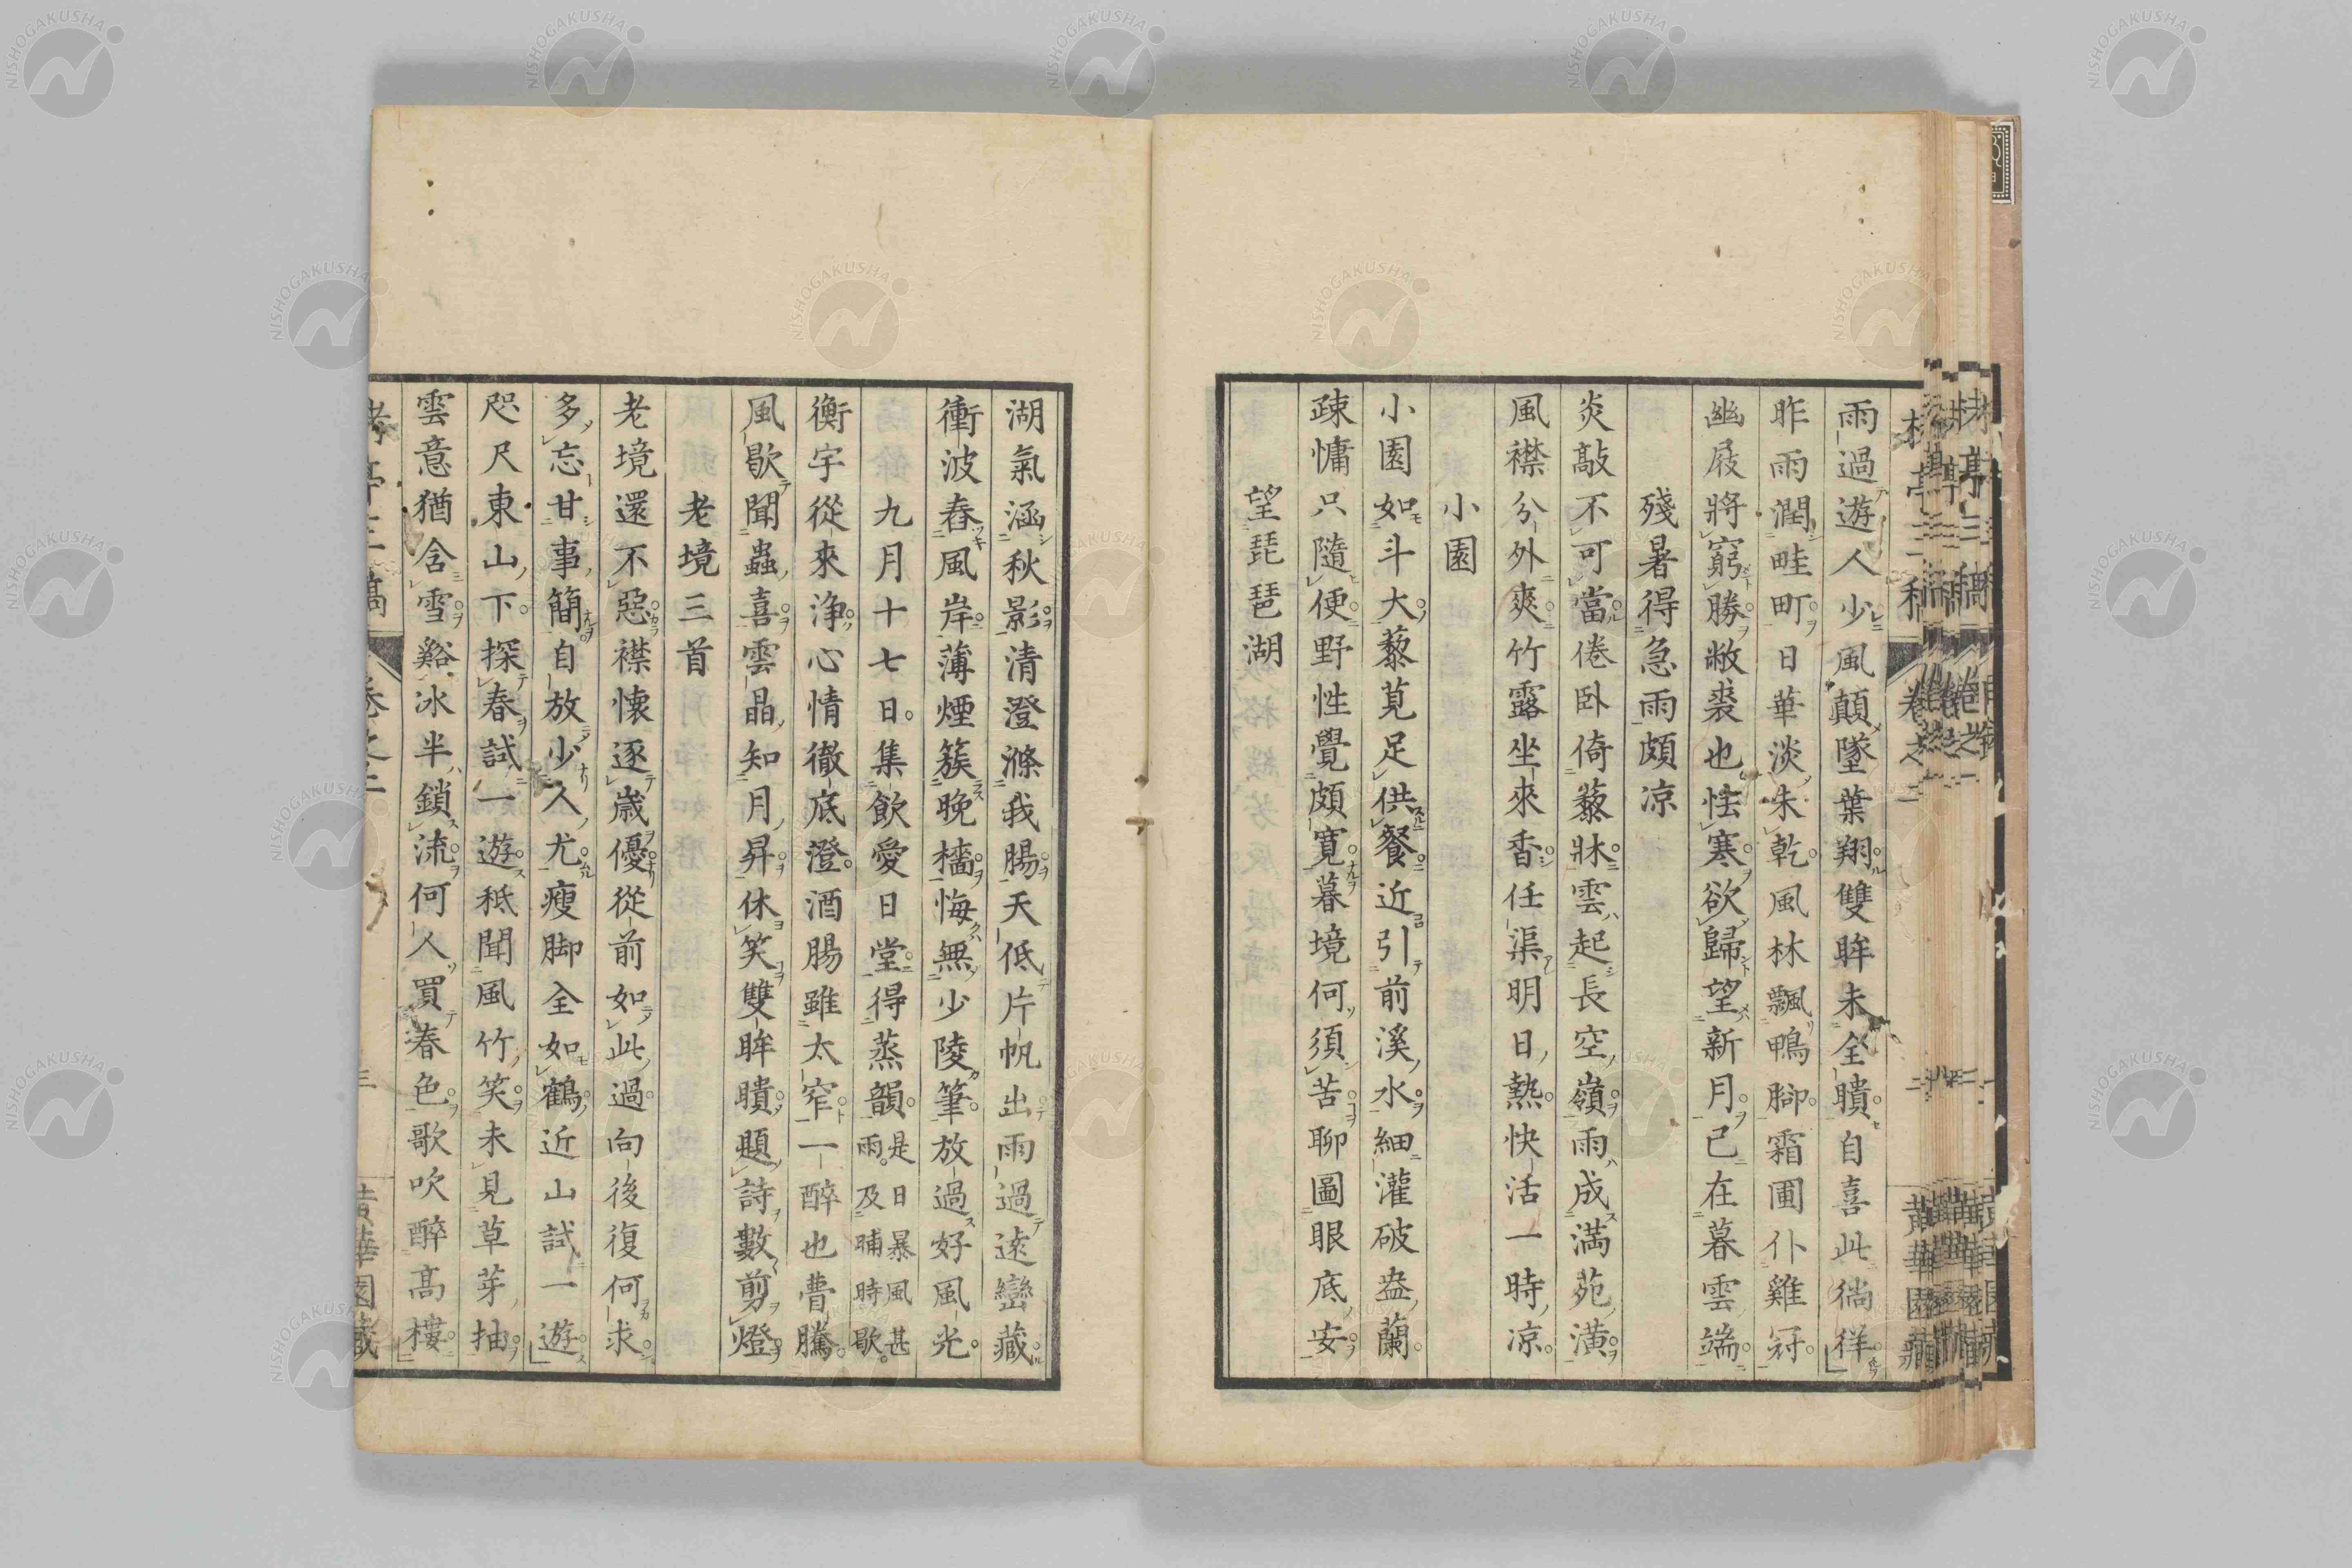 雨過遊人少風顛墜葉翔雙眸未全瞶自喜此徜徉
昨雨潤畦町日華淡未乾風林飄鴨脚霜圃仆雞冠
幽屐將窮勝敝裘也怯寒欲歸望新月已在暮雲端
殘暑得急雨頗凉
炎敲不可當倦卧倚藜牀雲起長空嶺雨成満苑潢
風襟分外爽竹露坐來香任渠明日熱快活一時凉
小園
小園如斗大藜莧足供餐近引前溪水細灌破盎蘭
疎慵只隨便野性覺頗寛暮境何須苦聊圖眼底安
望琵琶湖
湖氣涵秋影清澄滌我腸天低片帆出雨過遠巒藏
衝波舂風岸薄煙簇晩檣悔無少陵筆放過好風光
九月十七日集飲愛日堂得蒸韻是日暴風甚雨及晡時歇
衡宇從來浄心情徹底澄酒腸雖太窄一醉也曹騰
風歇聞蟲喜雲晶知月昇休笑雙眸瞶題詩數剪燈
老境三首
老境還不惡襟懐逐歳優從前如此過向後復何求
多忘甘事簡自放少人尤瘦脚全如鶴近山試一遊
咫尺東山下探春試一遊秪聞風竹笑未見草芽抽
雲意猶含雪谿冰半鎖流何人買春色歌吹醉高樓
卷之二
黄華園藏